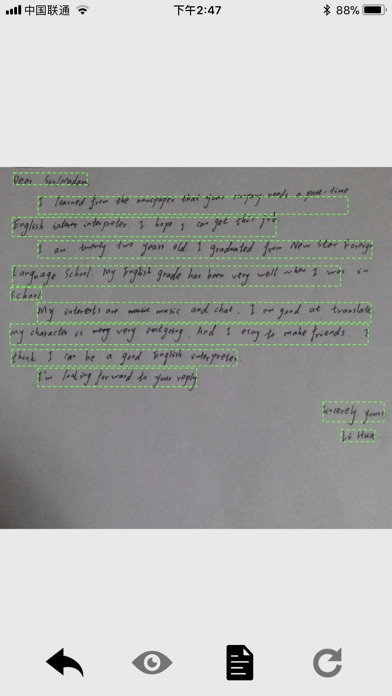 中国联通 下午2:47 88%
Dear Sir/Madam
I learned from the newspaper that your company needs a part-time
English interpreter. I hope I can get this job.
I am twenty two years old. I graduated from New Star Foreign
Language School. My English grade has been very well when I was in
School
My interests are music and chat. I am good at translate.
My character is very outgoing. And I easy to make friends. I
think I can be a good English interpreter
I'm looking forward to your reply
Sincerely yours
Li Hua